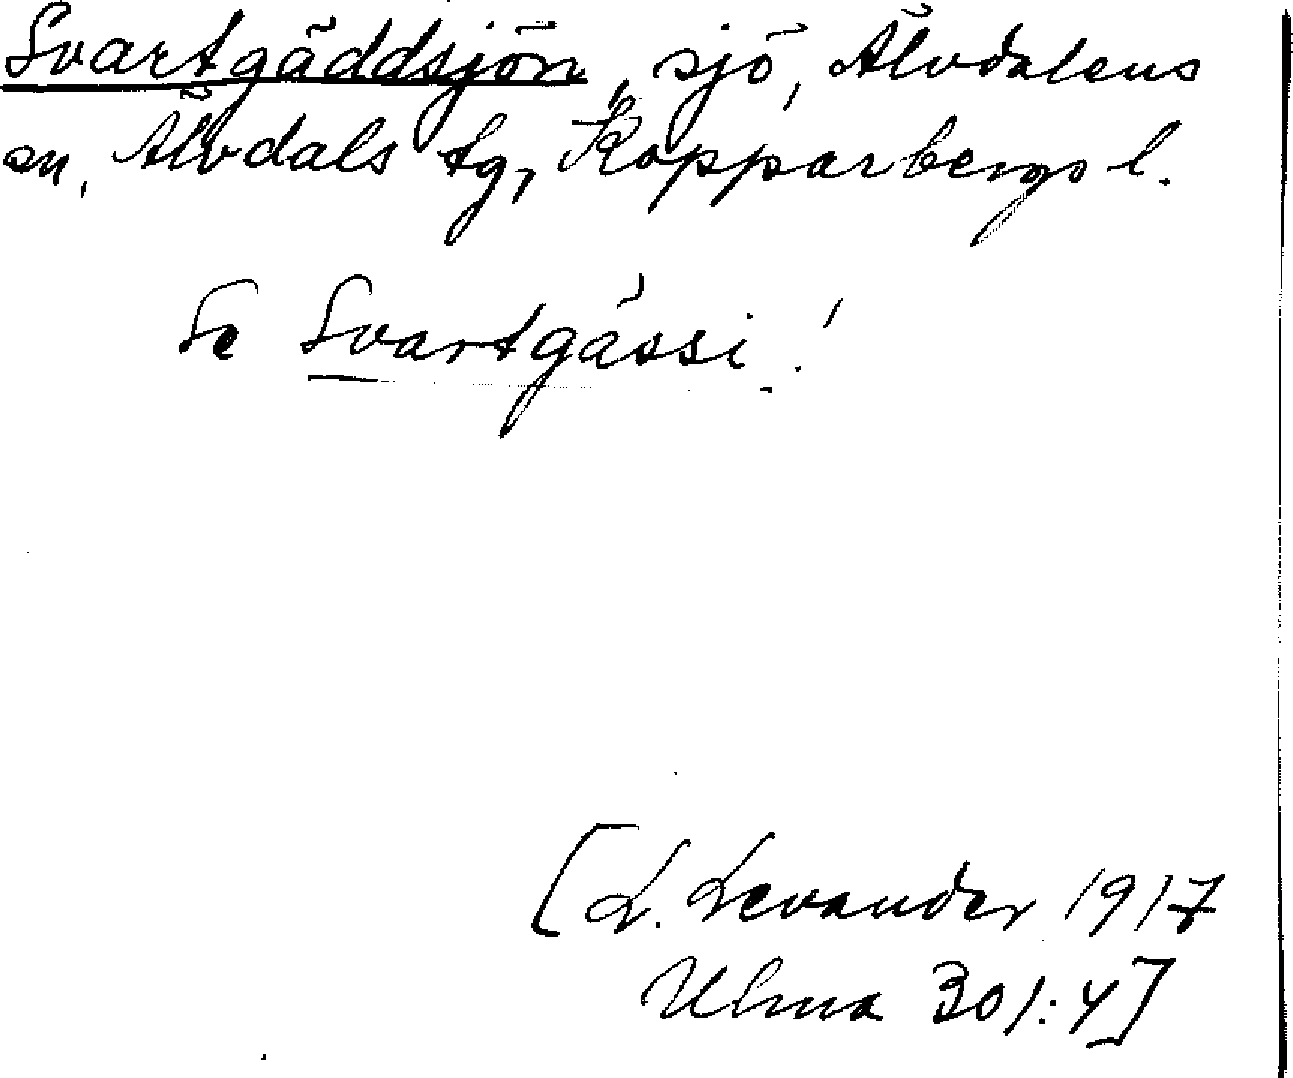 Svartgäddsjön, sjö, Älvdalens
sn, Älvdals tg, Kopparbergs l.
Se Svartgässi!
[L. Levander 1917
Ulma 301:4]